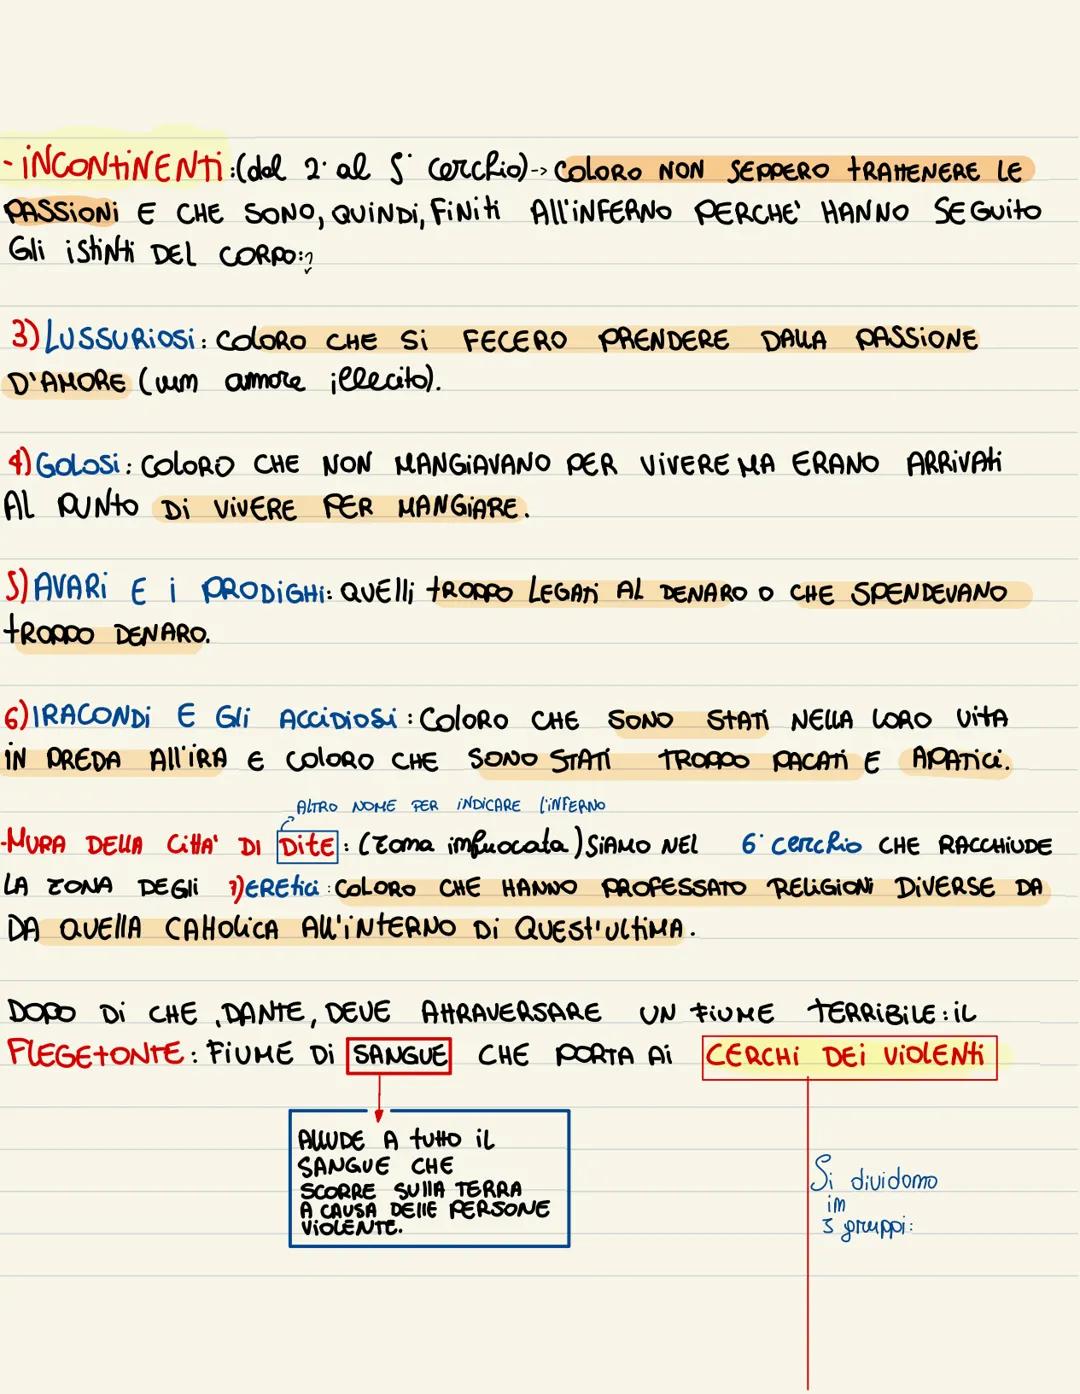 - INCONTINENTI:(dal 2° al 5° cerchio)-> COLORO NON SEPPERO TRATTENERE LE
PASSIONI E CHE SONO, QUINDI, FINITI ALL'INFERNO PERCHE' HANNO SEGUITO
GLI ISTINTI DEL CORPO:
3) LUSSURIOSI: COLORO CHE SI FECERO PRENDERE DALLA PASSIONE
D'AMORE (um amore illecito).
4) GOLOSI: COLORO CHE NON MANGIAVANO PER VIVERE MA ERANO ARRIVATI
AL PUNTO DI VIVERE PER MANGIARE.
5) AVARI E I PRODIGHI: QUELLI TROPPO LEGATI AL DENARO O CHE SPENDEVANO
TROPPO DENARO.
6) IRACONDI E GLI ACCIDIOSI: COLORO CHE SONO STATI NELLA LORO VITA
IN PREDA ALL'IRA E COLORO CHE SONO STATI TROPPO PACATI E APATICI.
ALTRO NOME PER INDICARE L'INFERNO
-MURA DELLA CITTA' DI DITE: (zona infuocata) SIAMO NEL 6° cerchio CHE RACCHIUDE
LA ZONA DEGLI 7) ERETICI: COLORO CHE HANNO PROFESSATO RELIGIONI DIVERSE DA
DA QUELLA CATTOLICA ALL'INTERNO DI QUEST'ULTIMA.
DOPO DI CHE, DANTE, DEVE ATTRAVERSARE UN FIUME TERRIBILE: IL
FLEGETONTE: FIUME DI SANGUE CHE PORTA AI CERCHI DEI VIOLENTI
ALLUDE A TUTTO IL
SANGUE CHE
SCORRE SULLA TERRA
A CAUSA DELLE PERSONE
VIOLENTE.
Si dividono
in
3 gruppi: